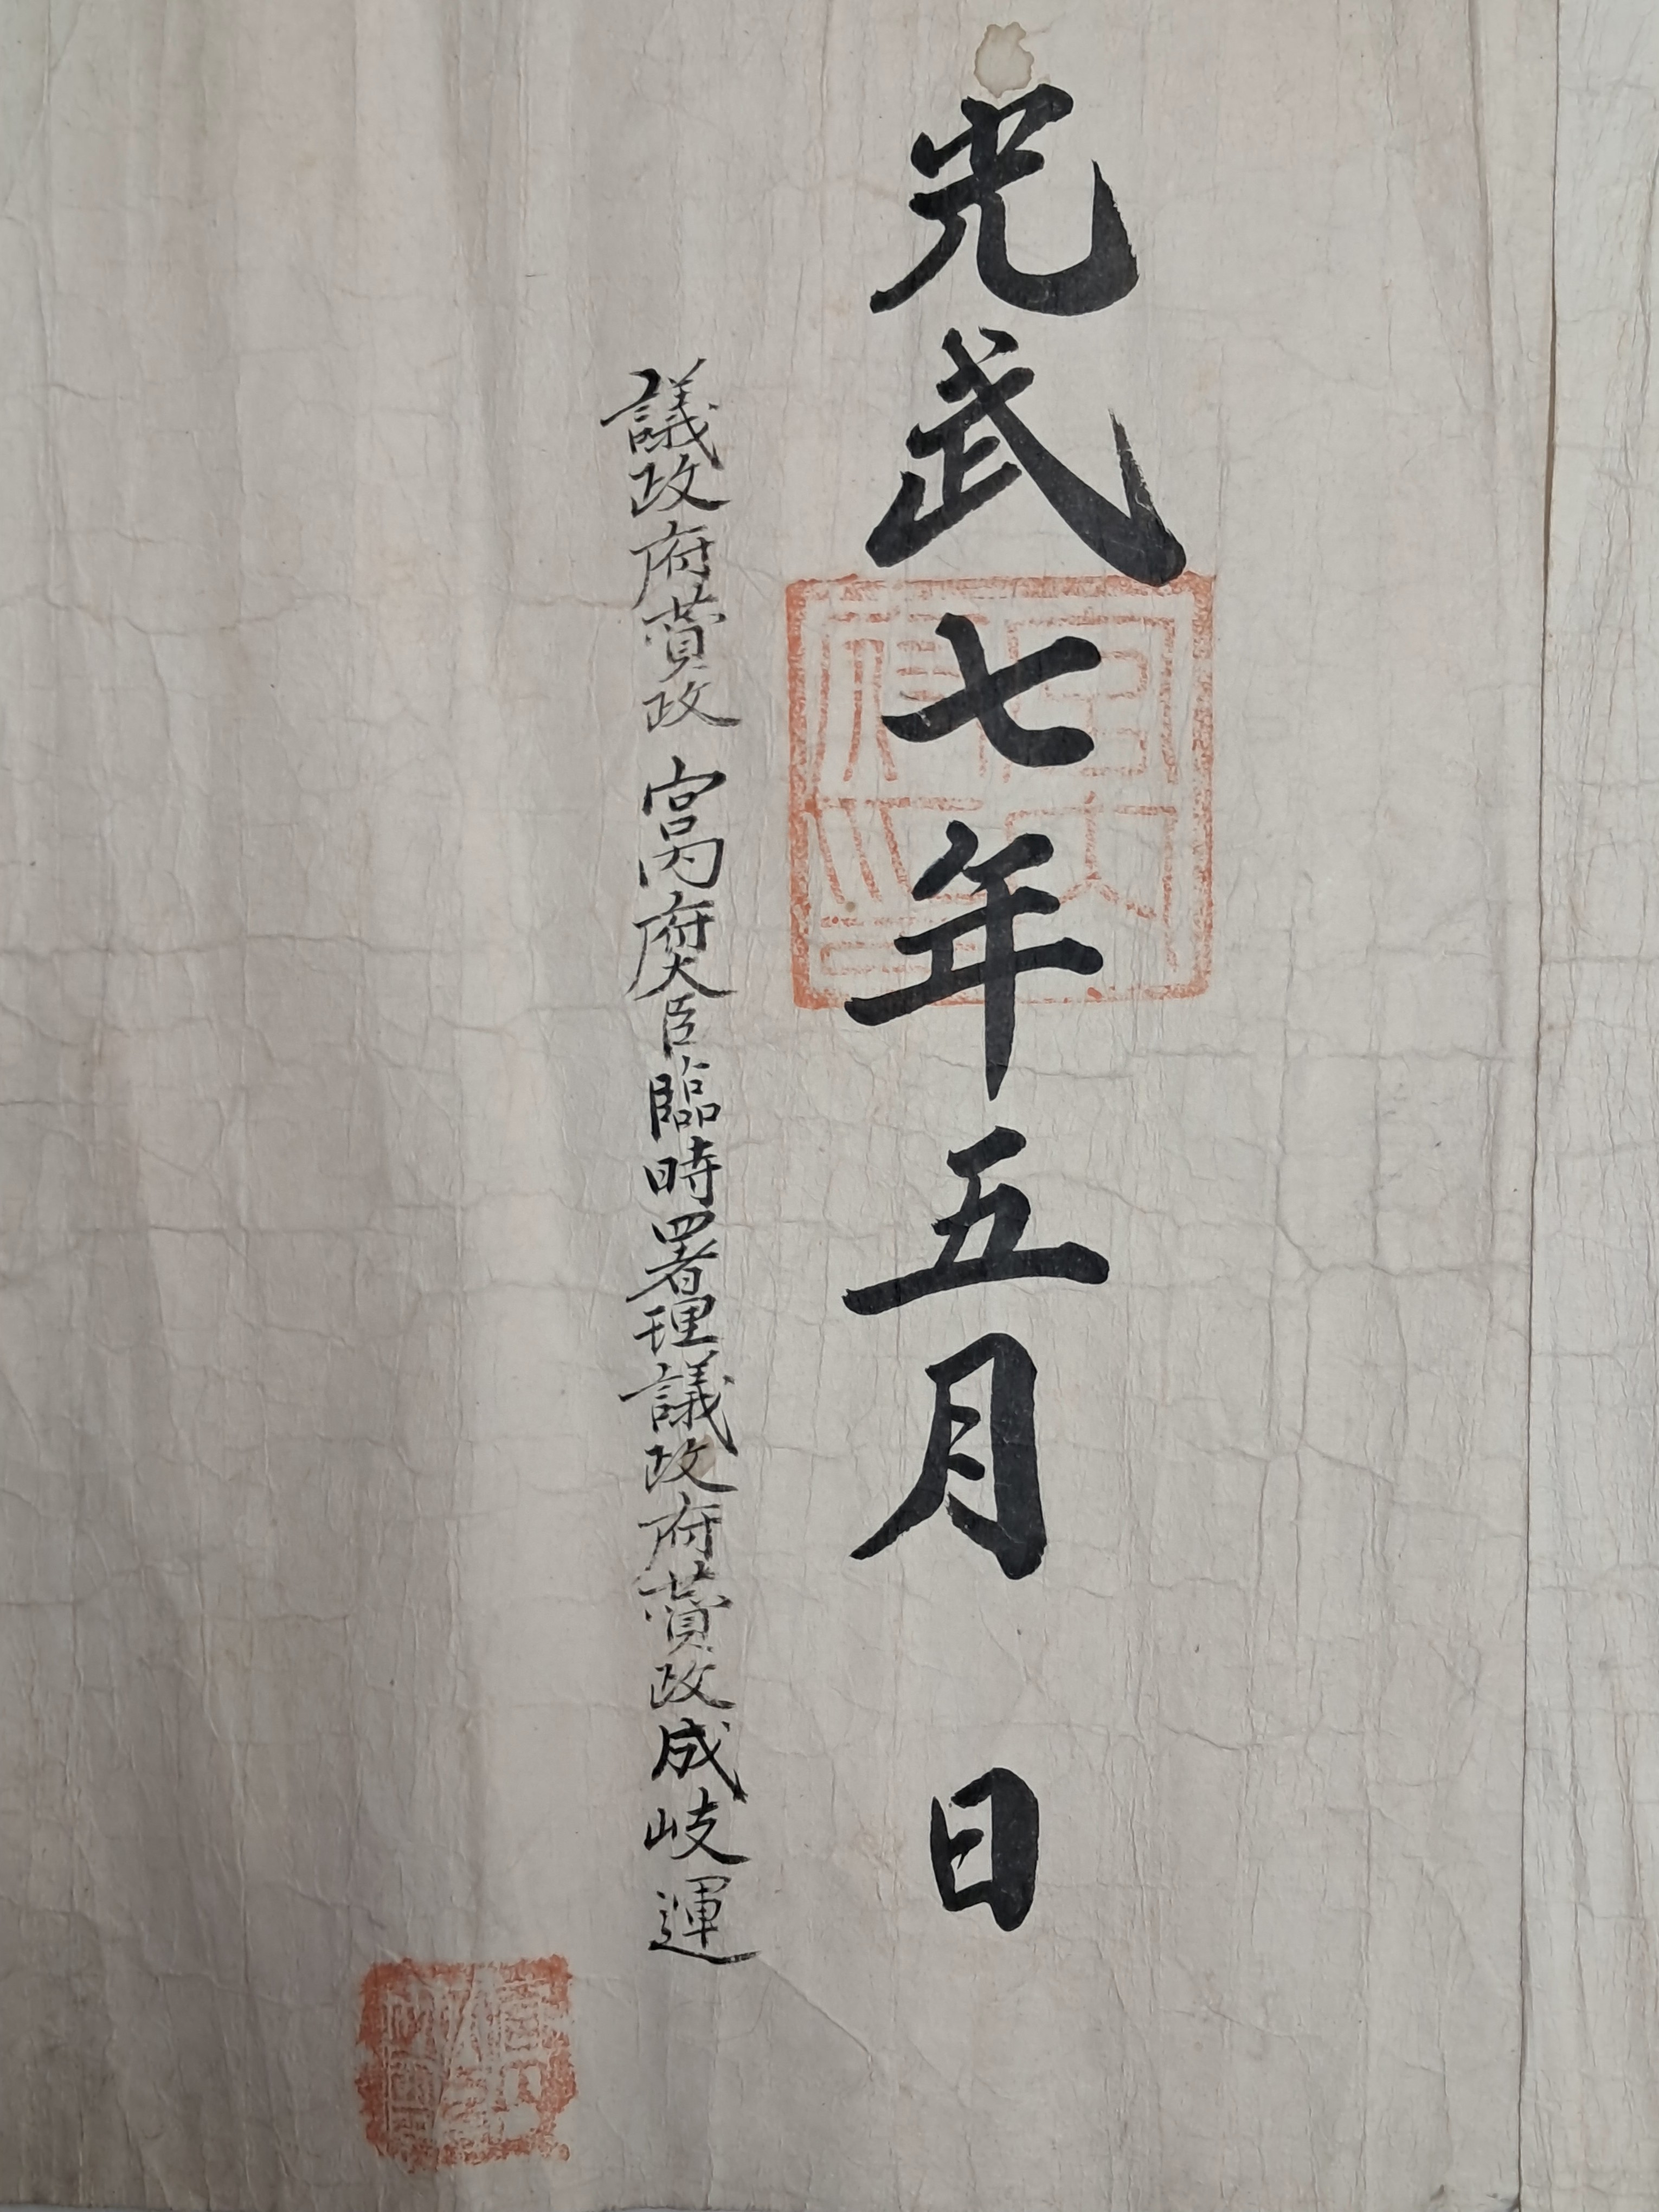 光武七年五月 日
議政府賛政 宮内府大臣臨時署理議政府賛政成岐運